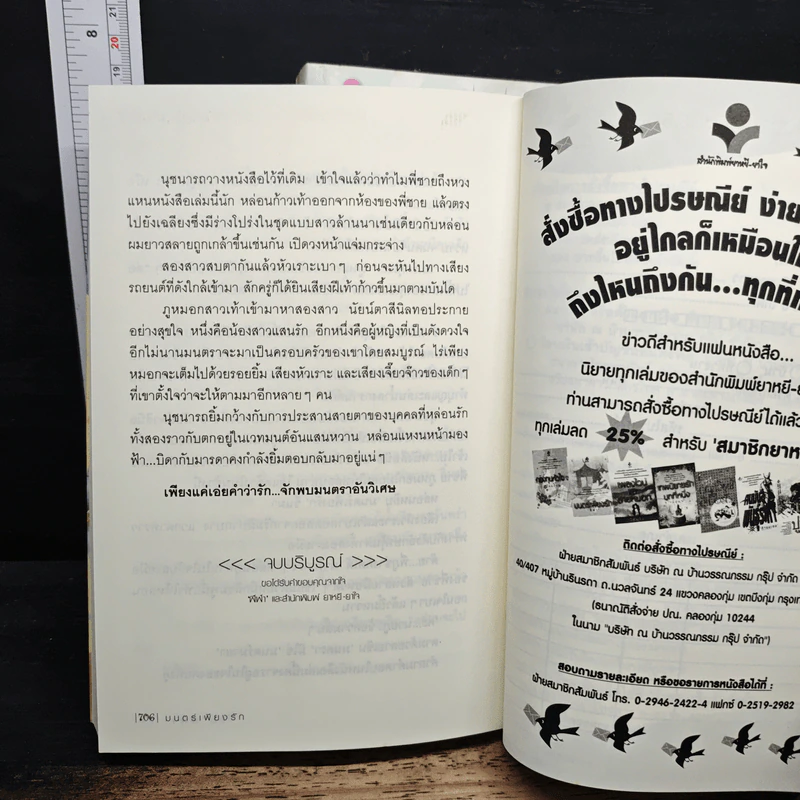 8
21
20
19
นุชนารถวางหนังสือไว้ที่เดิม เข้าใจแล้วว่าทำไมพี่ชายถึงหวง
แหนหนังสือเล่มนี้นัก หล่อนก้าวเท้าออกจากห้องของพี่ชาย แล้วตรง
ไปยังเฉลียงซึ่งมีร่างโปร่งในชุดแบบสาวล้านนาเช่นเดียวกับหล่อน
ผมยาวสลายถูกเกล้าขึ้นเช่นกัน เปิดวงหน้าแจ่มกระจ่าง
สองสาวสบตากันแล้วหัวเราะเบาๆ ก่อนจะหันไปทางเสียง
รถยนต์ที่ดังใกล้เข้ามา สักครู่ก็ได้ยินเสียงฝีเท้าก้าวขึ้นมาตามบันได
ภูหมอกสาวเท้าเข้ามาหาสองสาว นัยน์ตาสีนิลทอประกาย
อย่างสุขใจ หนึ่งคือน้องสาวแสนรัก อีกหนึ่งคือผู้หญิงที่เป็นดังดวงใจ
อีกไม่นานมนตราจะมาเป็นครอบครัวของเขาโดยสมบูรณ์ ไร่เพียง
หมอกจะเต็มไปด้วยรอยยิ้ม เสียงหัวเราะ และเสียงเจี๊ยวจ๊าวของเด็กๆ
ที่เขาตั้งใจว่าจะให้ตามมาอีกหลายๆ คน
นุชนารถยิ้มกว้างกับการประสานสายตาของบุคคลที่หล่อนรัก
ทั้งสองราวกับตกอยู่ในเวทมนต์อันแสนหวาน หล่อนแหงนหน้ามอง
ฟ้า...บิดากับมารดาคงกำลังยิ้มตอบกลับมาอยู่แน่ๆ
เพียงแค่เอ่ยคำว่ารัก...จักพบมนตราอันวิเศษ
<<< จบบริบูรณ์ >>>
ขอได้รับคำขอบคุณจากใจ
'ศิฬา' และสำนักพิมพ์ ยาหยี-ยาใจ
|706| มนตร์เพียงรัก
สำนักพิมพ์ยาหยี-ยาใจ
สั่งซื้อทางไปรษณีย์ ง่าย
อยู่ไกลก็เหมือน
ถึงไหนถึงกัน...ทุกที่
ข่าวดีสำหรับแฟนหนังสือ...
นิยายทุกเล่มของสำนักพิมพ์ยาหยี-
ท่านสามารถสั่งซื้อทางไปรษณีย์ได้แล้ว
ทุกเล่มลด 25% สำหรับ 'สมาชิกยาห
ติดต่อสั่งซื้อทางไปรษณีย์ :
ฝ่ายสมาชิกสัมพันธ์ บริษัท ณ บ้านวรรณกรรม กรุ๊ป จำกัด
40/407 หมู่บ้านรินรดา ถ.นวลจันทร์ 24 แขวงคลองกุ่ม เขตบึงกุ่ม กรุงเท
(ธนาณัติสั่งจ่าย ปณ. คลองกุ่ม 10244
ในนาม "บริษัท ณ บ้านวรรณกรรม กรุ๊ป จำกัด")
สอบถามรายละเอียด หรือขอรายการหนังสือได้ที่ :
ฝ่ายสมาชิกสัมพันธ์ โทร. 0-2946-2422-4 แฟกซ์ 0-2519-2982